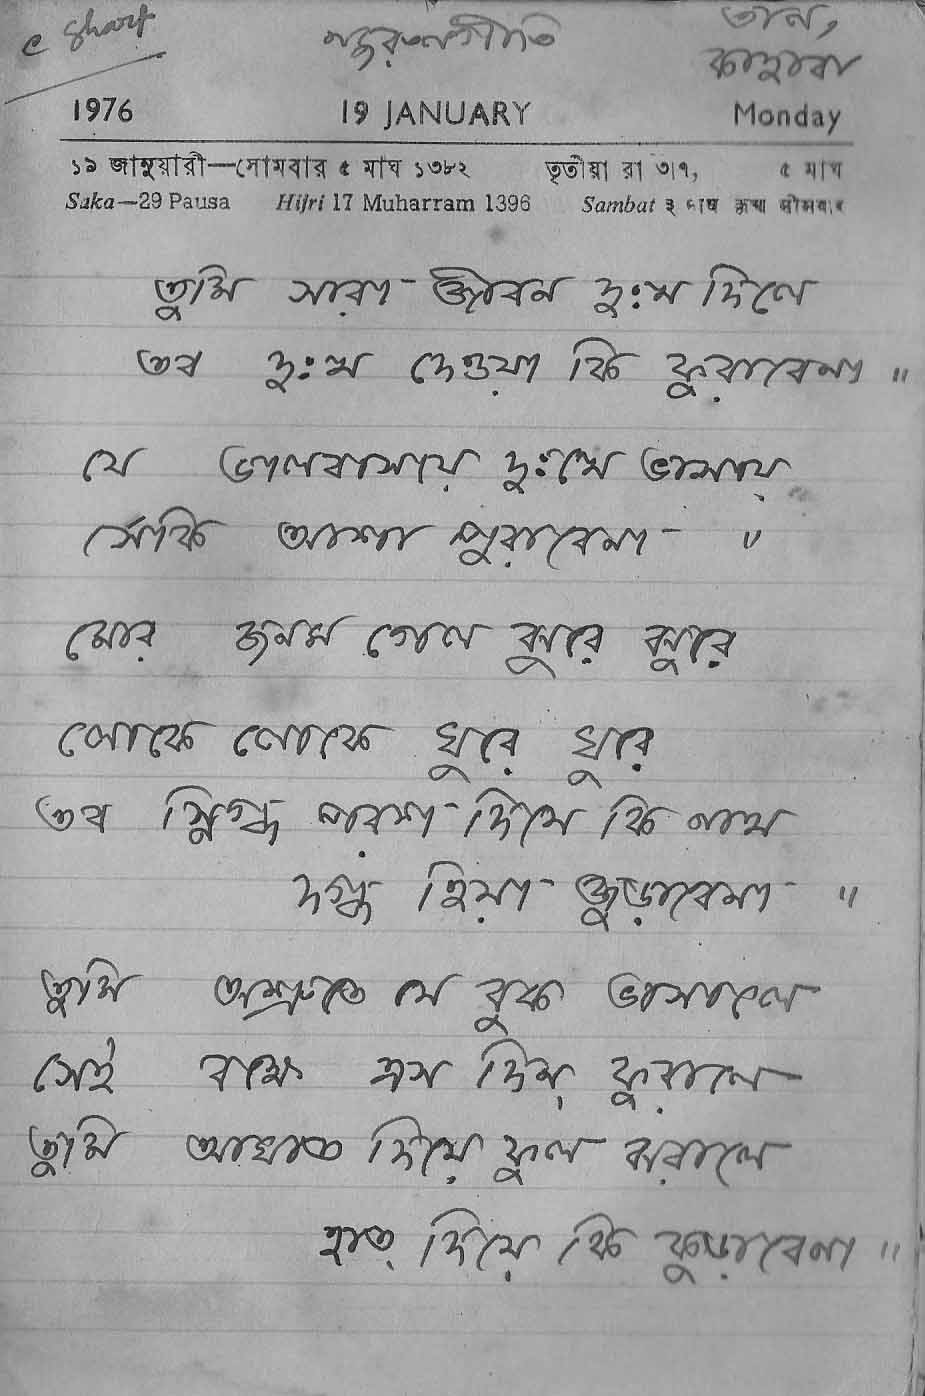 c sharp
নজরুলগীতি
তাল,
কাহারবা
1976 19 JANUARY Monday
১৯ জানুয়ারী—সোমবার ৫ মাঘ ১৩৮২ তৃতীয়া রা ৩।৭, ৫ মাঘ
Saka—29 Pausa Hijri 17 Muharram 1396 Sambat ३ माघ कृष्ण सोमवार
তুমি সারা জীবন দুঃখ দিলে
তব দুঃখ দেওয়া কি ফুরাবেনা "
যে ভালবাসায় দুঃখে ভাসায়
সেকি আশা পুরাবেনা "
মোর জনম গেল ঝুরে ঝুরে
লোকে লোকে ঘুরে ঘুরে
তব স্নিগ্ধ পরশ দিয়ে কি নাথ
দগ্ধ হিয়া জুড়াবেনা "
তুমি অশ্রুতে যে বুক ভাসালে
সেই বক্ষে এস দিন ফুরালে
তুমি আঘাত দিয়ে ফুল ঝরালে
হাত দিয়ে কি কুড়াবেনা "